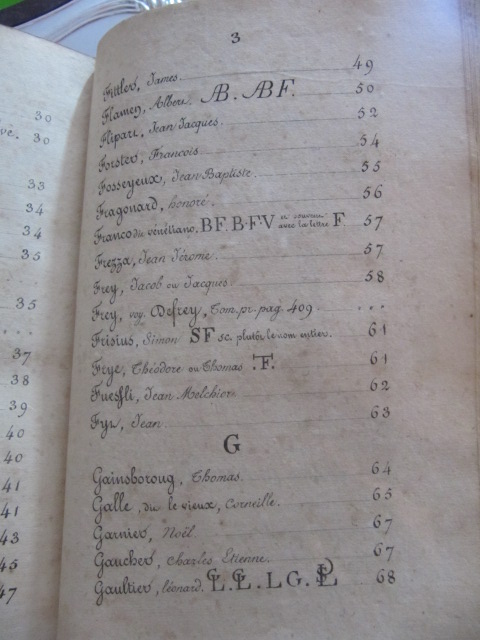 30
30
33
34
34
35
35
...
37
38
39
40
40
41
41
43
45
47
3
Fittler, James 49
Flamen, Albert. AB. ABF. 50
Flipart, Jean Jacques. 52
Forster, François 54
Fosseyeux, Jean Baptiste. 55
Fragonard, honoré. 56
Franco du vénétiano, BF. B.F.V et souvent avec la lettre F 57
Frezza, Jean Jérôme. 57
Frey, Jacob ou Jacques 58
Frey, voy. Defrey, Tom. pr. pag. 409 ...
Frisius, Simon SF sc. plutôt le nom entier. 61
Frye, Théodore ou Thomas .F. 61
Fuessli, Jean Melchior 62
Fyt, Jean 63
G
Gainsboroug, Thomas. 64
Galle, dit le vieux, Corneille. 65
Garnier, Noël. 67
Gaucher, Charles Etienne. 67
Gaultier, léonard. L. L. L G. 68